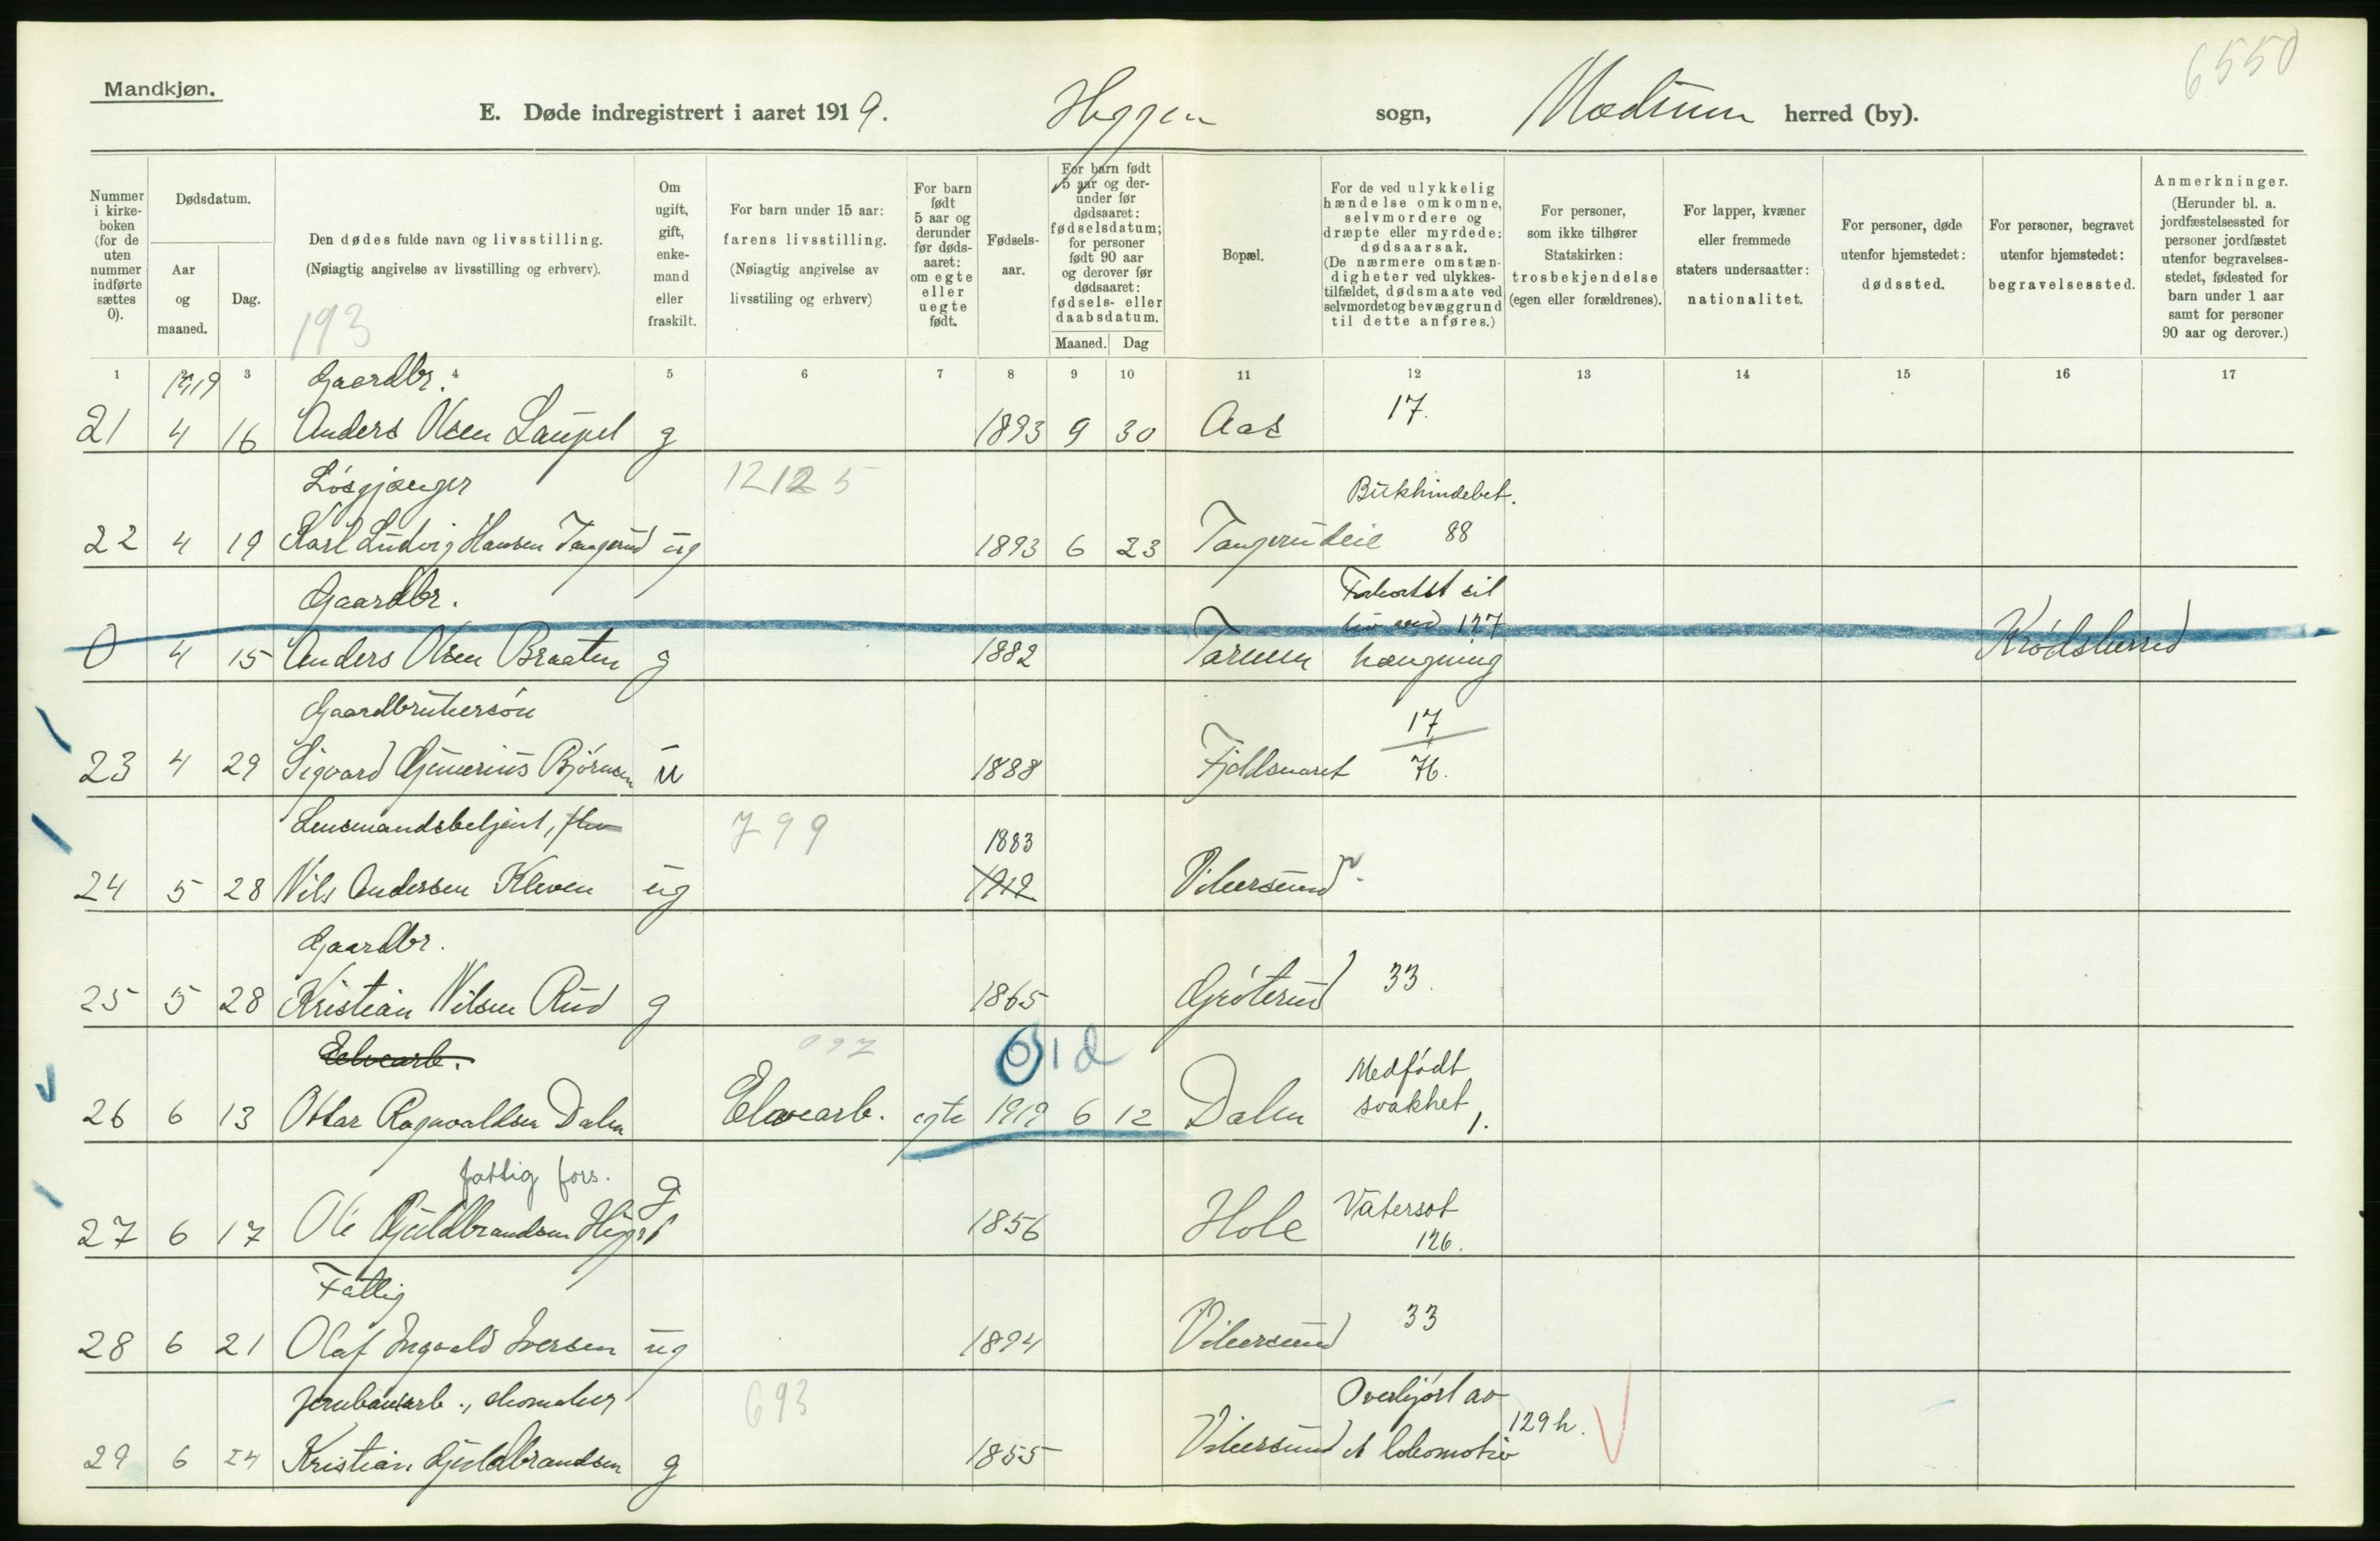 6550
Mandkjøn.
E. Døde indregistrert i aaret 1919. Heggen sogn, Modum herred (by).
Nummer i kirkeboken (for de uten nummer indførte sættes 0).
Dødsdatum.
Aar og maaned.
Dag.
Den dødes fulde navn og livsstilling.
(Nøiagtig angivelse av livsstilling og erhverv).
193
Om ugift, gift, enkemand eller fraskilt.
For barn under 15 aar: farens livsstilling.
(Nøiagtig angivelse av livsstiling og erhverv)
For barn født 5 aar og derunder før dødsaaret: om egte eller uegte født.
Fødselsaar.
For barn født 5 aar og derunder før dødsaaret: fødselsdatum; for personer født 90 aar og derover før dødsaaret: fødsels- eller daabsdatum.
Maaned. Dag
Bopæl.
For de ved ulykkelig hændelse omkomne, selvmordere og dræpte eller myrdede: dødsaarsak.
(De nærmere omstændigheter ved ulykkestilfældet, dødsmaate ved selvmordet og bevæggrund til dette anføres.)
For personer, som ikke tilhører Statskirken: trosbekjendelse (egen eller forældrenes).
For lapper, kvæner eller fremmede staters undersaatter: nationalitet.
For personer, døde utenfor hjemstedet: dødssted.
For personer, begravet utenfor hjemstedet: begravelsessted.
Anmerkninger.
(Herunder bl. a. jordfæstelsessted for personer jordfæstet utenfor begravelsesstedet, fødested for barn under 1 aar samt for personer 90 aar og derover.)
1 3 4 5 6 7 8 9 10 11 12 13 14 15 16 17
1919 Gaardbr.
21 4 16 Anders Olsen Laupet g 1893 9 30 Aas 17.
Løsgjænger 12125 Bukhindebet.
22 4 19 Karl Ludvig Hansen Tangerud ug 1893 6 23 Tangerudeie 88
Gaardbr. Forkortet sit
liv ved 127
0 4 15 Anders Olsen Braaten g 1882 hængning Krødsherred
Gaardbrukersøn 17
23 4 29 Sigvard Gunerius Bjørnsen u 1888 76.
Lensmandsbetjent, 799 1883
24 5 28 Nils Andersen Kleven ug 1919 Vikersund
Gaardbr.
25 5 28 Kristian Nilsen Rud g 1865 Grøterud 33.
Elvearb. 01d Medfødt
26 6 13 Ottar Ragnvaldsen Dalen Elvearb. egte 1919 6 12 Dalen svakhet 1.
fattig fors. g Vatersot
27 6 17 Ole Guldbrandsen 1856 Hole 126.
Fattig
28 6 21 Olaf Ingvald Iversen ug 1894 Vikersund 33
Jernbanearb., 693 Overkjørt av
129h.
29 6 24 Kristian Guldbrandsen g 1855 Vikersund et lokomotiv